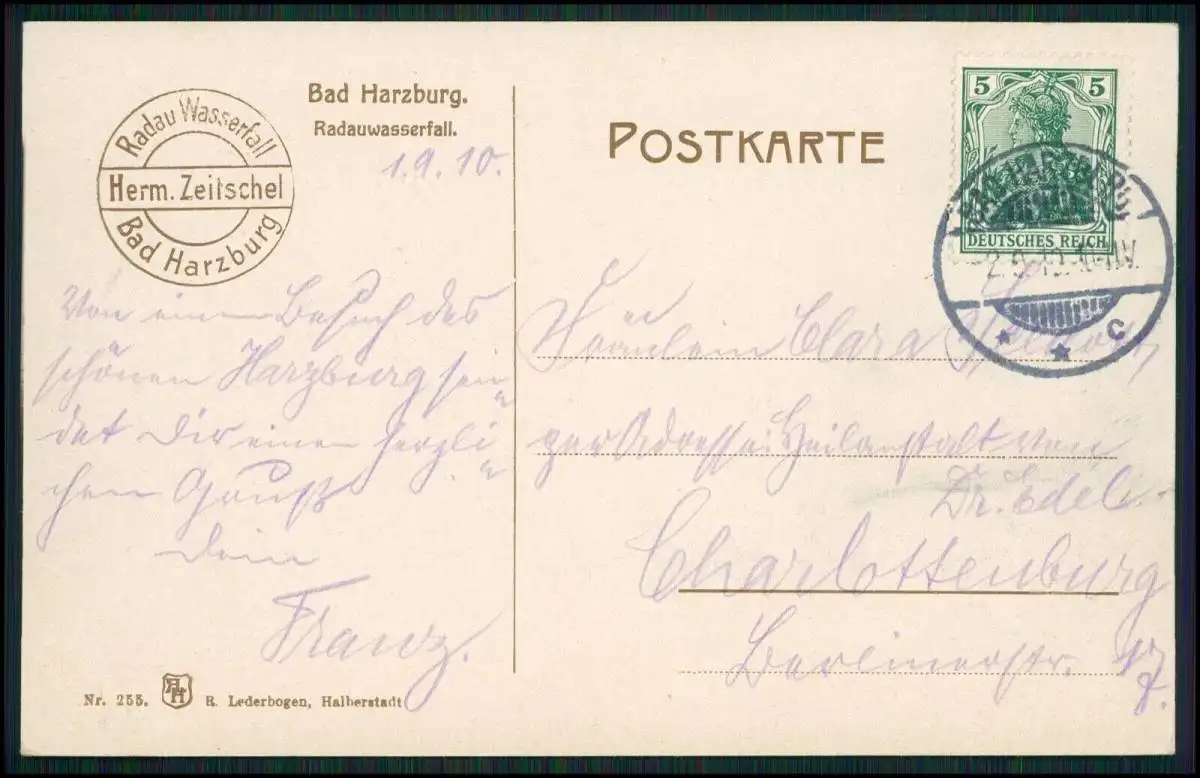 Radau Wasserfall
Herm. Zeitschel
Bad Harzburg
Bad Harzburg.
Radauwasserfall.
1.9.10.
Von einem Besuch des
schönen Harzburg sen=
det Dir einen herzli=
chen Gruß
Dein
Franz.
Nr. 255.
R. Lederbogen, Halberstadt
POSTKARTE
5 5
DEUTSCHES REICH
BAD HARZBURG
2.9.10.
* * c
Fräulein Clara
zur Adresse: Heilanstalt von
Dr. Edel.
Charlottenburg
Berlinerstr. 17